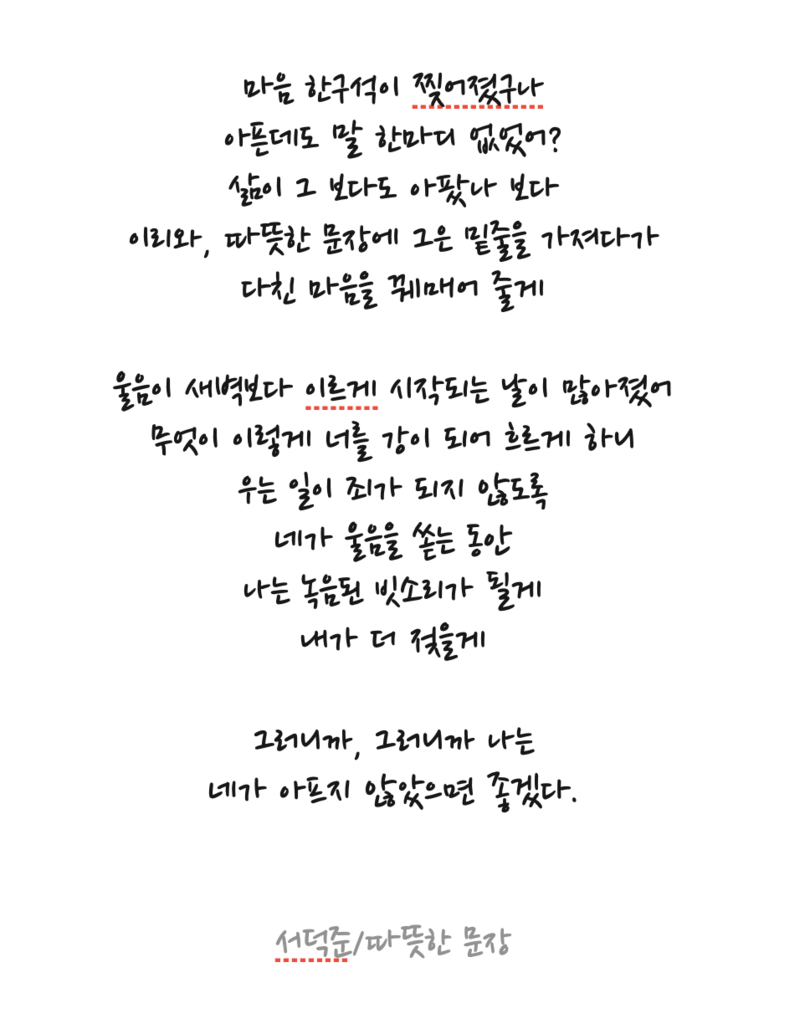 마음 한구석이 찢어졌구나
아픈데도 말 한마디 없었어?
삶이 그 보다도 아팠나 보다
이리와, 따뜻한 문장에 그은 밑줄을 가져다가
다친 마음을 꿰매어 줄게
울음이 새벽보다 이르게 시작되는 날이 많아졌어
무엇이 이렇게 너를 강이 되어 흐르게 하니
우는 일이 죄가 되지 않도록
네가 울음을 쏟는 동안
나는 녹음된 빗소리가 될게
내가 더 젖을게
그러니까, 그러니까 나는
네가 아프지 않았으면 좋겠다.
서덕준/따뜻한 문장